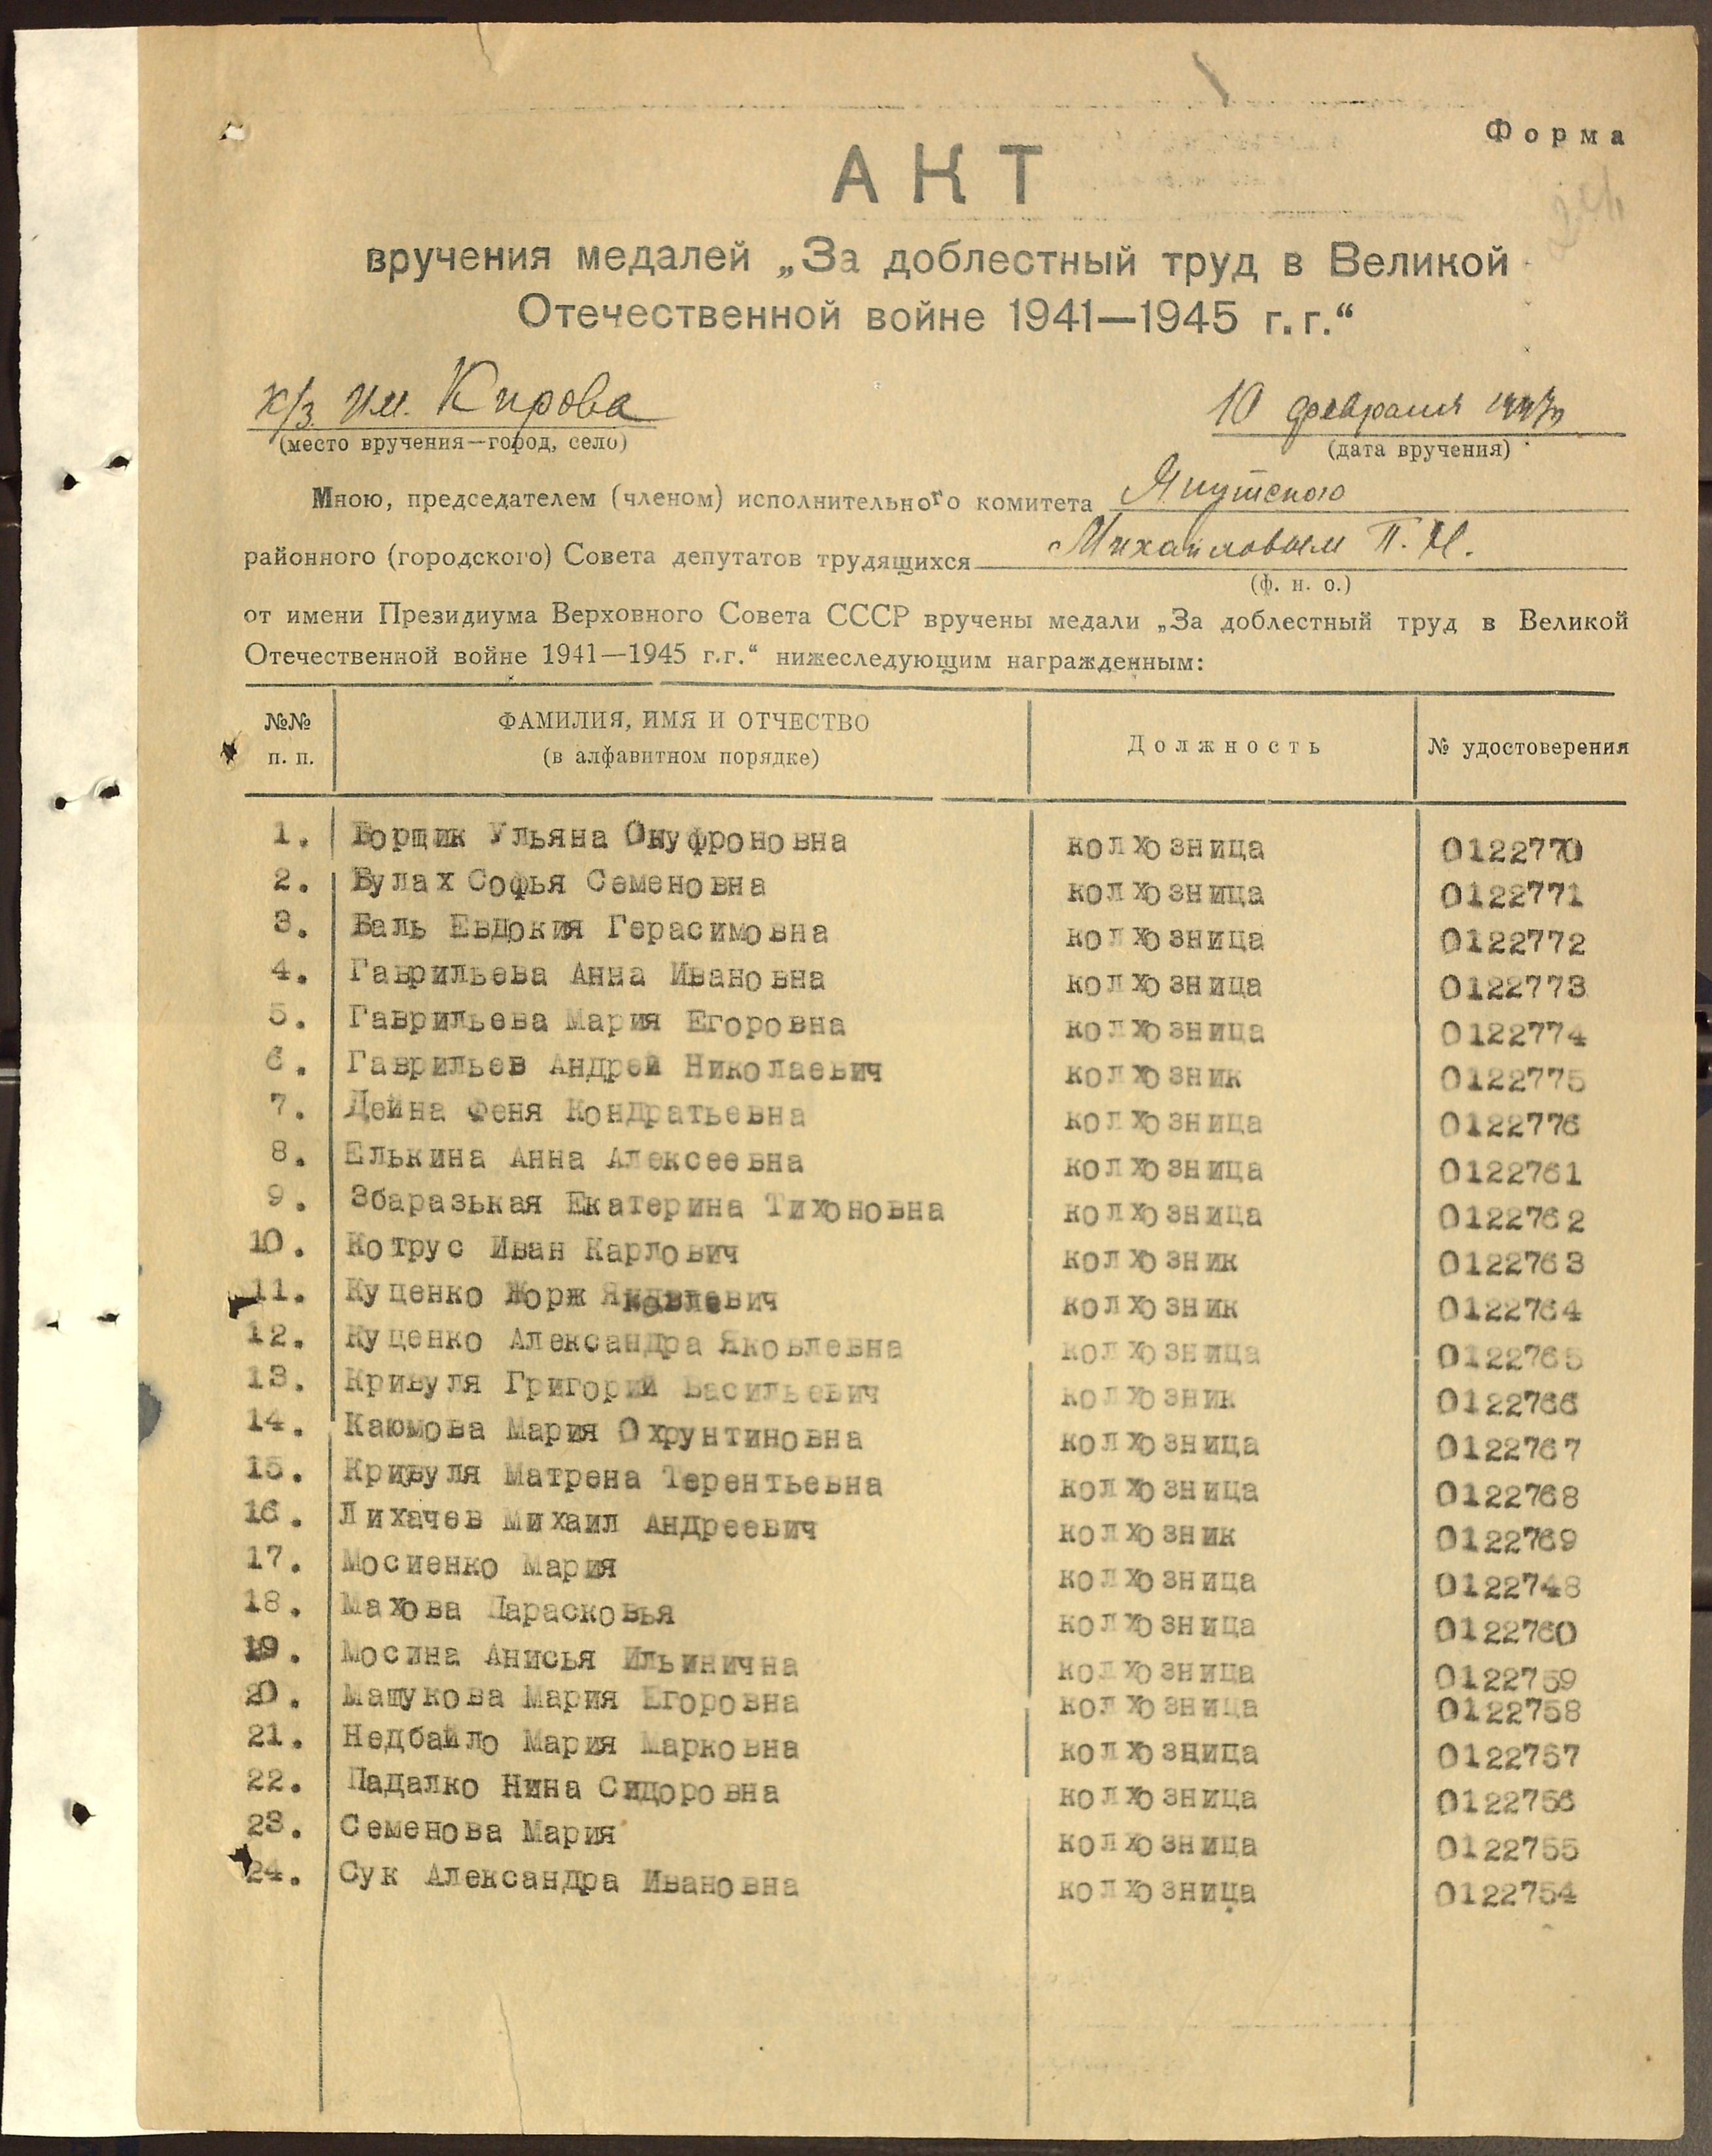 Форма
АКТ
вручения медалей „За доблестный труд в Великой
Отечественной войне 1941—1945 г.г.“
к/з им. Кирова
10 февраля 1947г
(место вручения—город, село)
(дата вручения)
Мною, председателем (членом) исполнительного комитета Якутского
районного (городского) Совета депутатов трудящихся Михайловым П. И.
(ф. и. о.)
от имени Президиума Верховного Совета СССР вручены медали „За доблестный труд в Великой
Отечественной войне 1941—1945 г.г.“ нижеследующим награжденным:
№№ п. п. ФАМИЛИЯ, ИМЯ И ОТЧЕСТВО (в алфавитном порядке) Должность № удостоверения
1. Борщик Ульяна Онуфроновна колхозница 0122770
2. Булах Софья Семеновна колхозница 0122771
3. Баль Евдокия Герасимовна колхозница 0122772
4. Гаврильева Анна Ивановна колхозница 0122773
5. Гаврильева Мария Егоровна колхозница 0122774
6. Гаврильев Андрей Николаевич колхозник 0122775
7. Дейна Феня Кондратьевна колхозница 0122776
8. Елькина Анна Алексеевна колхозница 0122761
9. Збаразькая Екатерина Тихоновна колхозница 0122762
10. Котрус Иван Карлович колхозник 0122763
11. Куценко Жорж Яковлевич колхозник 0122764
12. Куценко Александра Яковлевна колхозница 0122765
13. Кривуля Григорий Васильевич колхозник 0122766
14. Каюмова Мария Охрунтиновна колхозница 0122767
15. Кривуля Матрена Терентьевна колхозница 0122768
16. Лихачев Михаил Андреевич колхозник 0122769
17. Мосиенко Мария колхозница 0122748
18. Махова Парасковья колхозница 0122760
19. Мосина Анисья Ильинична колхозница 0122759
20. Машукова Мария Егоровна колхозница 0122758
21. Недбайло Мария Марковна колхозница 0122757
22. Падалко Нина Сидоровна колхозница 0122756
23. Семенова Мария колхозница 0122755
24. Сук Александра Ивановна колхозница 0122754